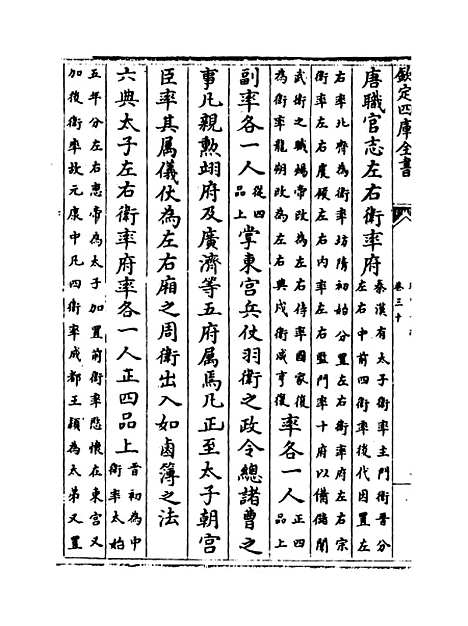 欽定四庫全書
卷三十
唐職官志左右衛率府
秦漢有太子衛率主門衛晉分
左右中前四衛率後代因置左
右率北齊為衛率坊隋初始分置左右衛率府左右宗
衛率左右虞候左右內率左右監門率十府以備儲闈
武衛之職煬帝改為左右侍率國家復
為衛率龍朔改為左右典戎衛咸亨復
率各一人
正四
品上
副率各一人
從四
品上
掌東宮兵仗羽衛之政令總諸曹之
事凡親勲翊府及廣濟等五府属焉凡正至太子朝宮
臣率其属儀仗為左右廂之周衛出入如鹵簿之法
六典太子左右衛率府率各一人正四品上
晋初為中
衛率太始
五年分左右惠帝為太子加置前衛率愍懷在東宮又
加後衛率故元康中凡四衛率成都王穎為太弟又置